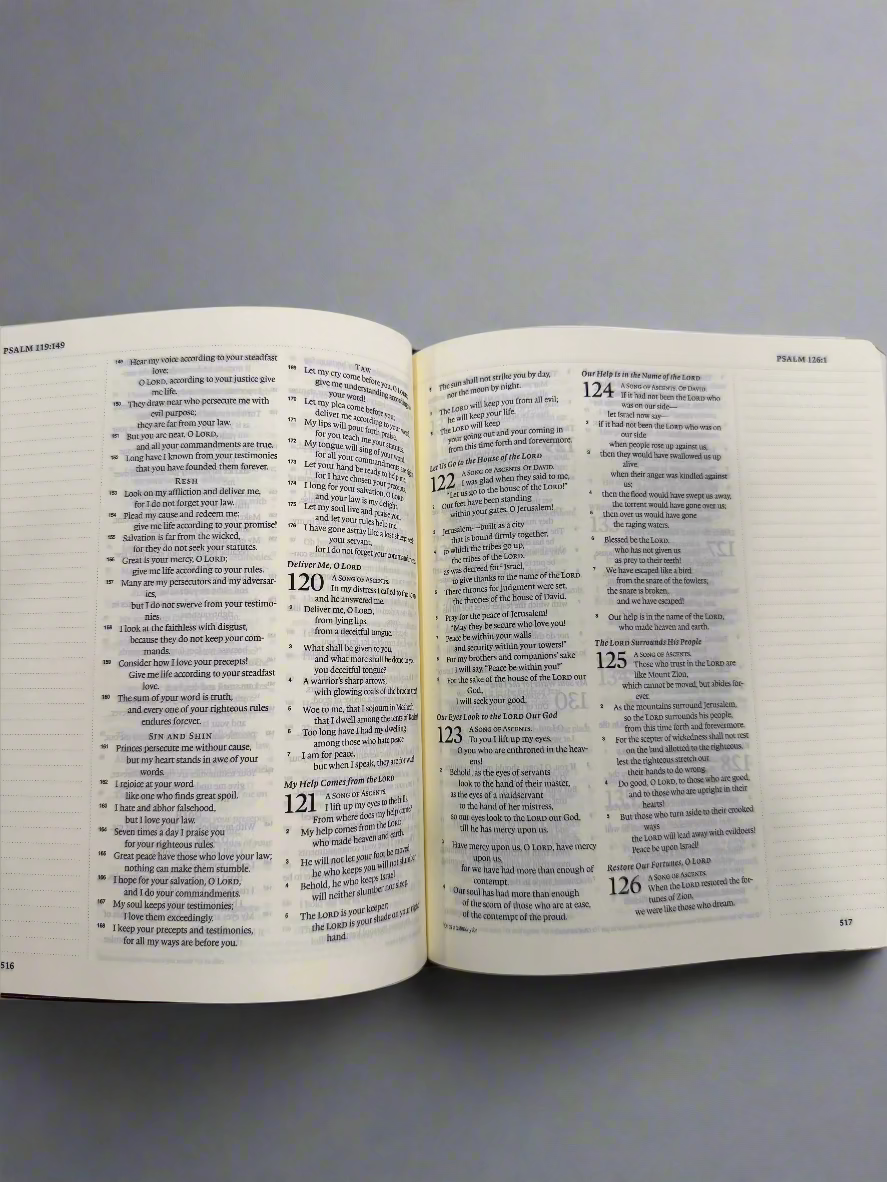 PSALM 119:149
149 Hear my voice according to your steadfast
love;
O LORD, according to your justice give
me life.
150 They draw near who persecute me with
evil purpose;
they are far from your law.
151 But you are near, O LORD,
and all your commandments are true.
152 Long have I known from your testimonies
that you have founded them forever.
RESH
153 Look on my affliction and deliver me,
for I do not forget your law.
154 Plead my cause and redeem me;
give me life according to your promise!
155 Salvation is far from the wicked,
for they do not seek your statutes.
156 Great is your mercy, O LORD;
give me life according to your rules.
157 Many are my persecutors and my adversar-
ies,
but I do not swerve from your testimo-
nies.
158 I look at the faithless with disgust,
because they do not keep your com-
mands.
159 Consider how I love your precepts!
Give me life according to your steadfast
love.
160 The sum of your word is truth,
and every one of your righteous rules
endures forever.
SIN AND SHIN
161 Princes persecute me without cause,
but my heart stands in awe of your
words.
162 I rejoice at your word
like one who finds great spoil.
163 I hate and abhor falsehood,
but I love your law.
164 Seven times a day I praise you
for your righteous rules.
165 Great peace have those who love your law;
nothing can make them stumble.
166 I hope for your salvation, O LORD,
and I do your commandments.
167 My soul keeps your testimonies;
I love them exceedingly.
168 I keep your precepts and testimonies,
for all my ways are before you.
TAW
169 Let my cry come before you, O LORD;
give me understanding according to
your word!
170 Let my plea come before you;
deliver me according to your word.
171 My lips will pour forth praise,
for you teach me your statutes.
172 My tongue will sing of your word,
for all your commandments are right.
173 Let your hand be ready to help me,
for I have chosen your precepts.
174 I long for your salvation, O LORD,
and your law is my delight.
175 Let my soul live and praise you,
and let your rules help me.
176 I have gone astray like a lost sheep; seek
your servant,
for I do not forget your commandments.
Deliver Me, O LORD
120 A SONG OF ASCENTS.
In my distress I called to the LORD,
and he answered me.
2 Deliver me, O LORD,
from lying lips,
from a deceitful tongue.
3 What shall be given to you,
and what more shall be done to you,
you deceitful tongue?
4 A warrior's sharp arrows,
with glowing coals of the broom tree!
5 Woe to me, that I sojourn in Meshech,
that I dwell among the tents of Kedar!
6 Too long have I had my dwelling
among those who hate peace.
7 I am for peace,
but when I speak, they are for war!
My Help Comes from the LORD
121 A SONG OF ASCENTS.
I lift up my eyes to the hills.
From where does my help come?
2 My help comes from the LORD,
who made heaven and earth.
3 He will not let your foot be moved;
he who keeps you will not slumber.
4 Behold, he who keeps Israel
will neither slumber nor sleep.
5 The LORD is your keeper;
the LORD is your shade on your right
hand.
516
PSALM 126:1
6 The sun shall not strike you by day,
nor the moon by night.
7 The LORD will keep you from all evil;
he will keep your life.
8 The LORD will keep
your going out and your coming in
from this time forth and forevermore.
Let Us Go to the House of the LORD
122 A SONG OF ASCENTS. OF DAVID.
I was glad when they said to me,
"Let us go to the house of the LORD!"
2 Our feet have been standing
within your gates, O Jerusalem!
3 Jerusalem—built as a city
that is bound firmly together,
4 to which the tribes go up,
the tribes of the LORD,
as was decreed for Israel,
to give thanks to the name of the LORD.
5 There thrones for judgment were set,
the thrones of the house of David.
6 Pray for the peace of Jerusalem!
"May they be secure who love you!
7 Peace be within your walls
and security within your towers!"
8 For my brothers and companions' sake
I will say, "Peace be within you!"
9 For the sake of the house of the LORD our
God,
I will seek your good.
Our Eyes Look to the LORD Our God
123 A SONG OF ASCENTS.
To you I lift up my eyes,
O you who are enthroned in the heav-
ens!
2 Behold, as the eyes of servants
look to the hand of their master,
as the eyes of a maidservant
to the hand of her mistress,
so our eyes look to the LORD our God,
till he has mercy upon us.
3 Have mercy upon us, O LORD, have mercy
upon us,
for we have had more than enough of
contempt.
4 Our soul has had more than enough
of the scorn of those who are at ease,
of the contempt of the proud.
Our Help Is in the Name of the LORD
124 A SONG OF ASCENTS. OF DAVID.
If it had not been the LORD who
was on our side—
let Israel now say—
2 if it had not been the LORD who was on
our side
when people rose up against us,
3 then they would have swallowed us up
alive,
when their anger was kindled against
us;
4 then the flood would have swept us away,
the torrent would have gone over us;
5 then over us would have gone
the raging waters.
6 Blessed be the LORD,
who has not given us
as prey to their teeth!
7 We have escaped like a bird
from the snare of the fowlers;
the snare is broken,
and we have escaped!
8 Our help is in the name of the LORD,
who made heaven and earth.
The LORD Surrounds His People
125 A SONG OF ASCENTS.
Those who trust in the LORD are
like Mount Zion,
which cannot be moved, but abides for-
ever.
2 As the mountains surround Jerusalem,
so the LORD surrounds his people,
from this time forth and forevermore.
3 For the scepter of wickedness shall not rest
on the land allotted to the righteous,
lest the righteous stretch out
their hands to do wrong.
4 Do good, O LORD, to those who are good,
and to those who are upright in their
hearts!
5 But those who turn aside to their crooked
ways
the LORD will lead away with evildoers!
Peace be upon Israel!
Restore Our Fortunes, O LORD
126 A SONG OF ASCENTS.
When the LORD restored the for-
tunes of Zion,
we were like those who dream.
517